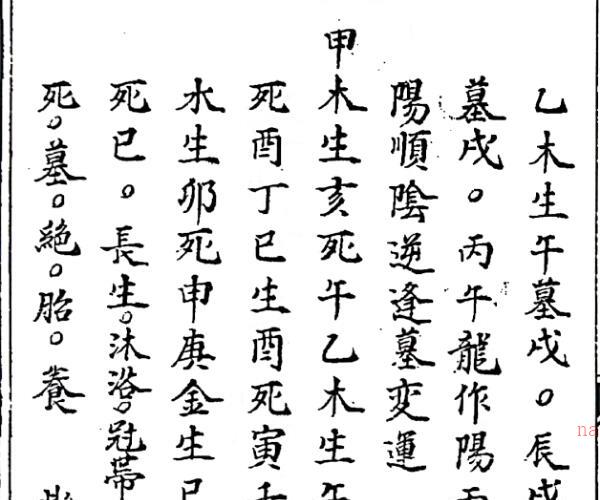 乙木生午墓戌。辰戌
墓戌。丙午龍作陽
陽順陰逆逢墓変運
甲木生亥死午乙木生午
死酉丁巳生酉死寅壬
水生卯死申庚金生巳
死巳。長生。沐浴。冠帯
死。墓。絕。胎。養
na